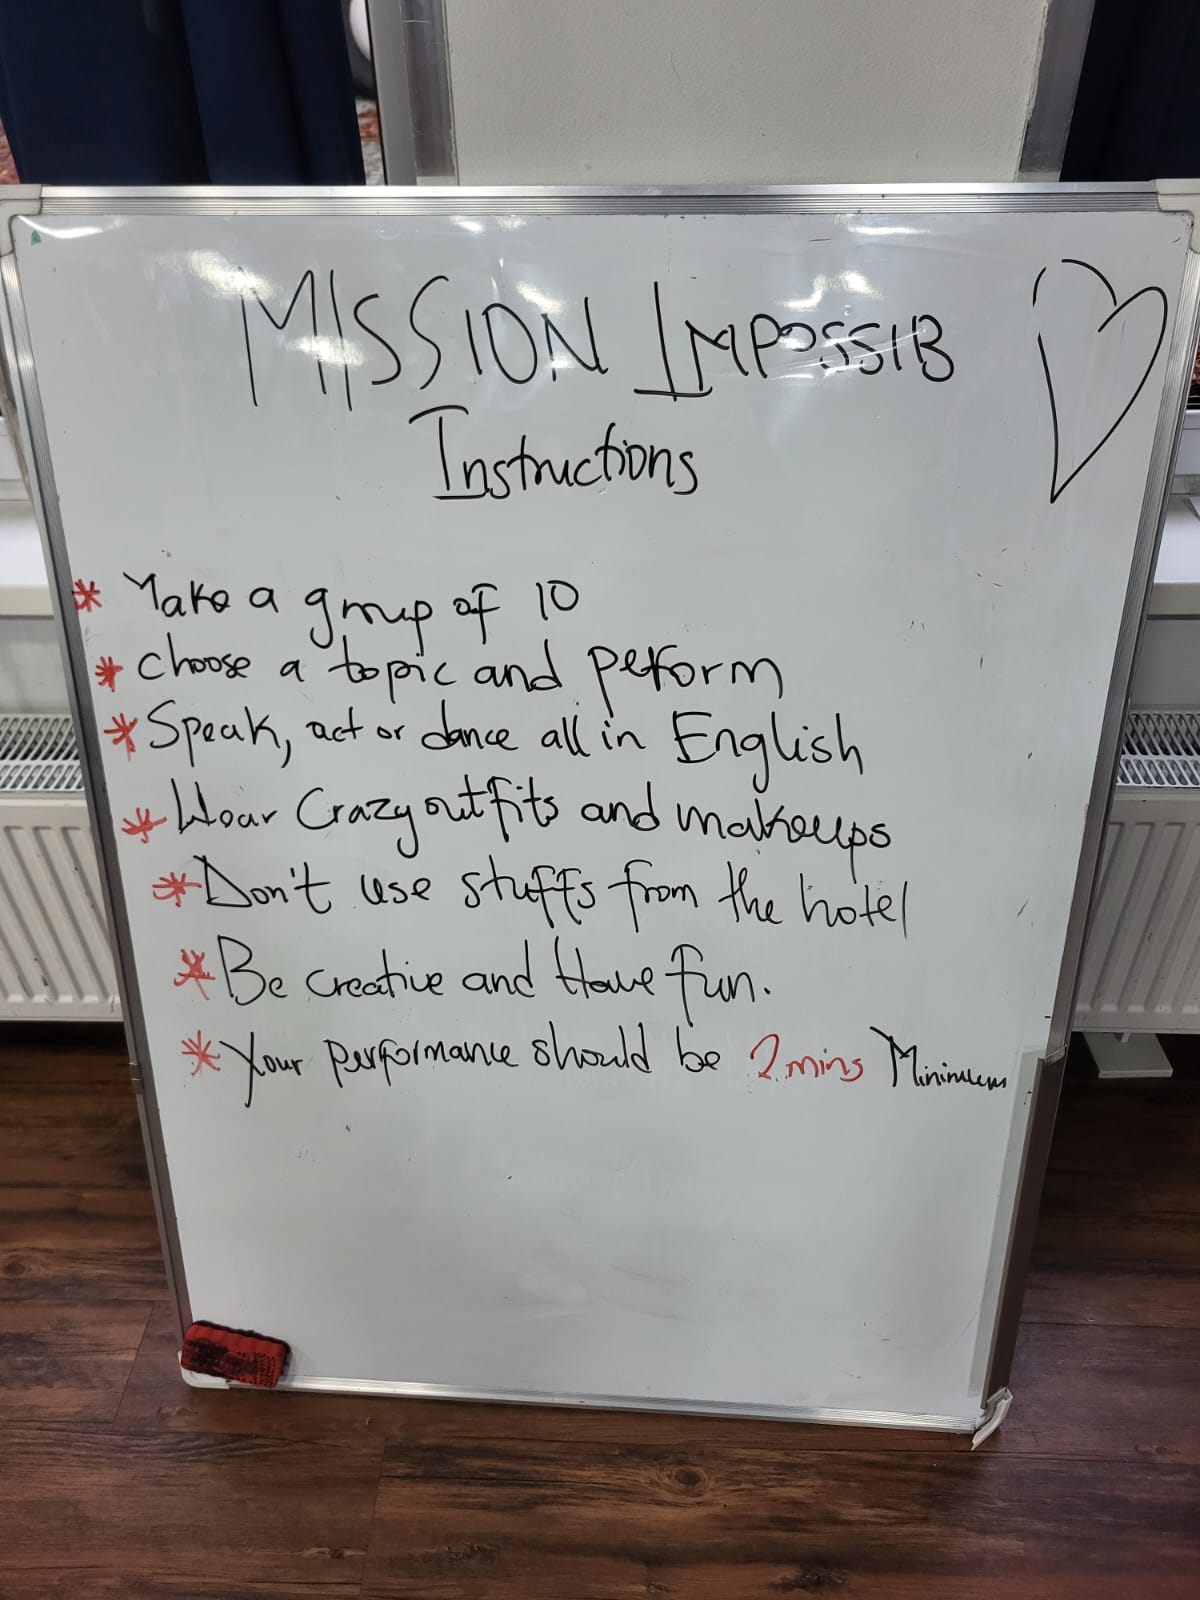 MISSION IMPOSSIB
Instructions
* Make a group of 10
* choose a topic and perform
* Speak, act or dance all in English
* Wear Crazy outfits and makeups
* Don't use stuffs from the hotel
* Be creative and Have fun.
* Your performance should be 2 mins Minimum